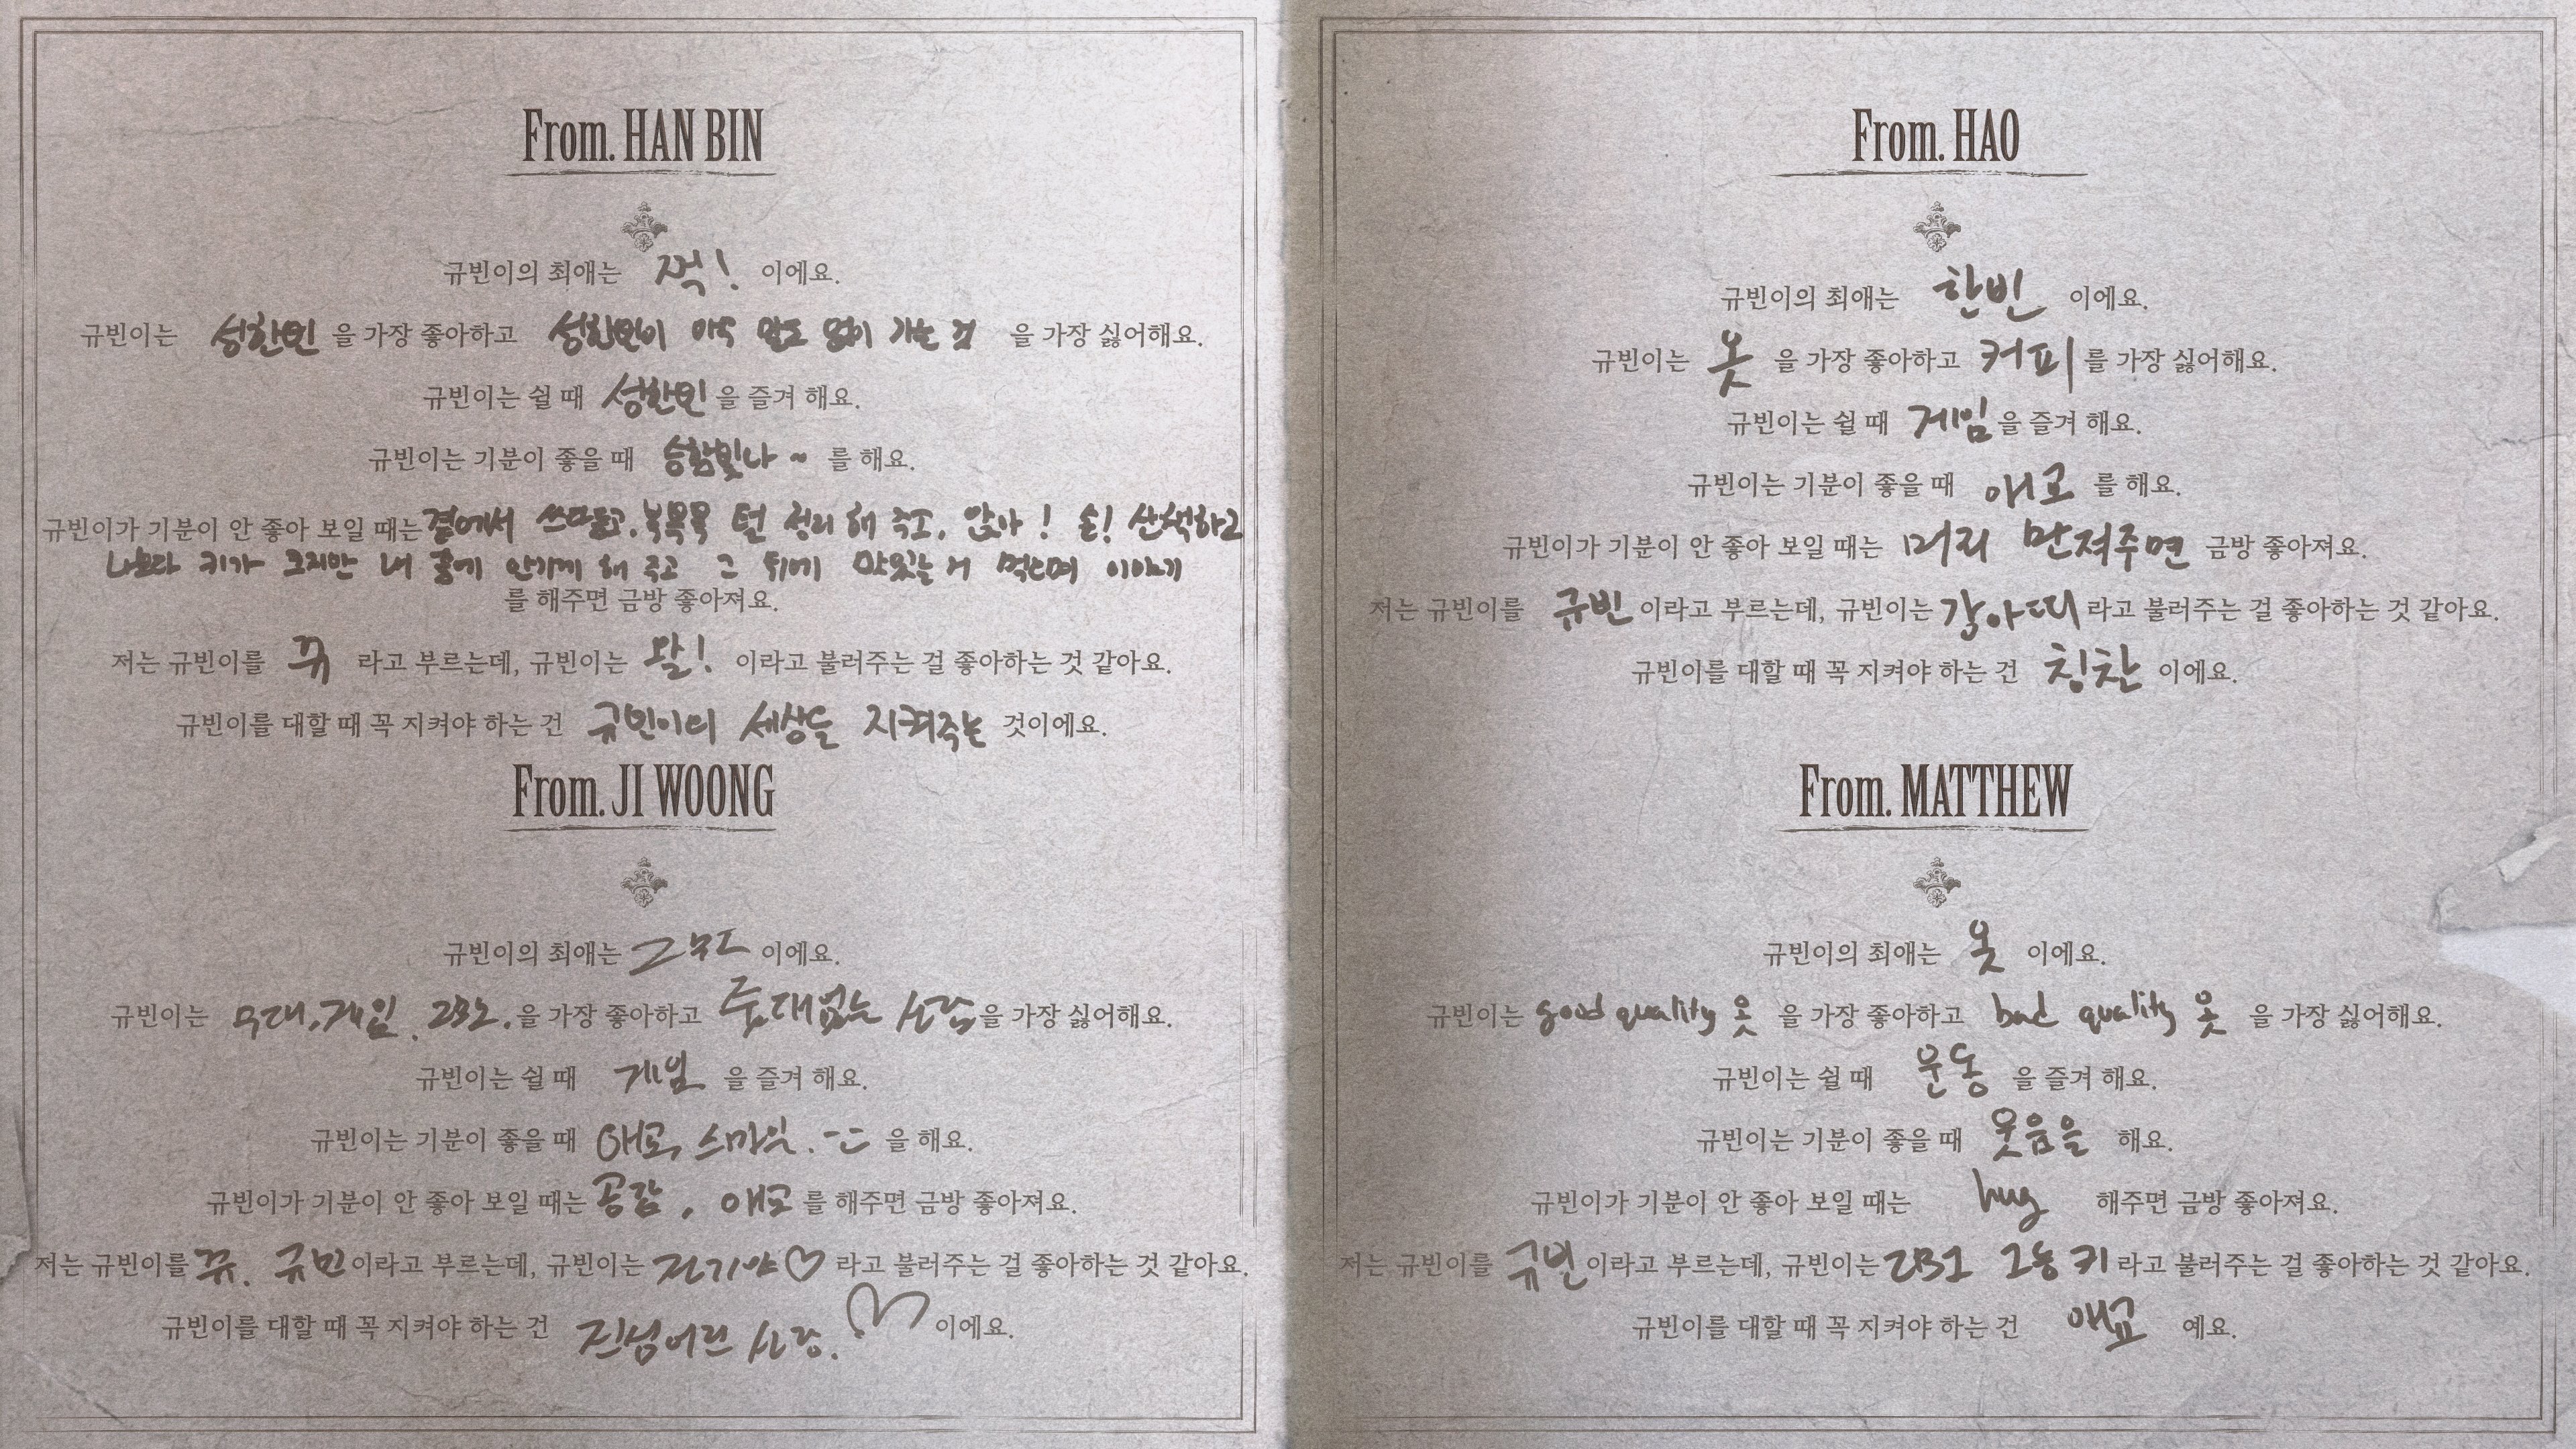 From. HAN BIN
규빈이의 최애는 이에요.
규빈이는 성한빈 을 가장 좋아하고 성한빈이 아무 말도 없이 가는 것 을 가장 싫어해요.
규빈이는 쉴 때 성한빈 을 즐겨 해요.
규빈이는 기분이 좋을 때 를 해요.
규빈이가 기분이 안 좋아 보일 때는 곁에서 쓰다듬고, 털 정리 해 주고, 앉아! 손! 산책하고
나보다 키가 크지만 내 품에 안기게 해 주고 그 뒤에 맛있는 거 먹으며 이야기
를 해주면 금방 좋아져요.
저는 규빈이를 뀨 라고 부르는데, 규빈이는 왈! 이라고 불러주는 걸 좋아하는 것 같아요.
규빈이를 대할 때 꼭 지켜야 하는 건 규빈이의 세상을 지켜주는 것이에요.
From. JI WOONG
규빈이의 최애는 이에요.
규빈이는 무대, 게임, ZB1. 을 가장 좋아하고 줏대없는 사람 을 가장 싫어해요.
규빈이는 쉴 때 게임 을 즐겨 해요.
규빈이는 기분이 좋을 때 애교, 스마일. 을 해요.
규빈이가 기분이 안 좋아 보일 때는 공감, 애교 를 해주면 금방 좋아져요.
저는 규빈이를 뀨. 규빈 이라고 부르는데, 규빈이는 자기야♡ 라고 불러주는 걸 좋아하는 것 같아요.
규빈이를 대할 때 꼭 지켜야 하는 건 진심어린 사랑.♡ 이에요.
From. HAO
규빈이의 최애는 한빈 이에요.
규빈이는 옷 을 가장 좋아하고 커피 를 가장 싫어해요.
규빈이는 쉴 때 게임 을 즐겨 해요.
규빈이는 기분이 좋을 때 애교 를 해요.
규빈이가 기분이 안 좋아 보일 때는 머리 만져주면 금방 좋아져요.
저는 규빈이를 규빈 이라고 부르는데, 규빈이는 강아띠 라고 불러주는 걸 좋아하는 것 같아요.
규빈이를 대할 때 꼭 지켜야 하는 건 칭찬 이에요.
From. MATTHEW
규빈이의 최애는 옷 이에요.
규빈이는 good quality 옷 을 가장 좋아하고 bad quality 옷 을 가장 싫어해요.
규빈이는 쉴 때 운동 을 즐겨 해요.
규빈이는 기분이 좋을 때 웃음을 해요.
규빈이가 기분이 안 좋아 보일 때는 hug 해주면 금방 좋아져요.
저는 규빈이를 규빈 이라고 부르는데, 규빈이는 ZB1 고농키 라고 불러주는 걸 좋아하는 것 같아요.
규빈이를 대할 때 꼭 지켜야 하는 건 애교 예요.